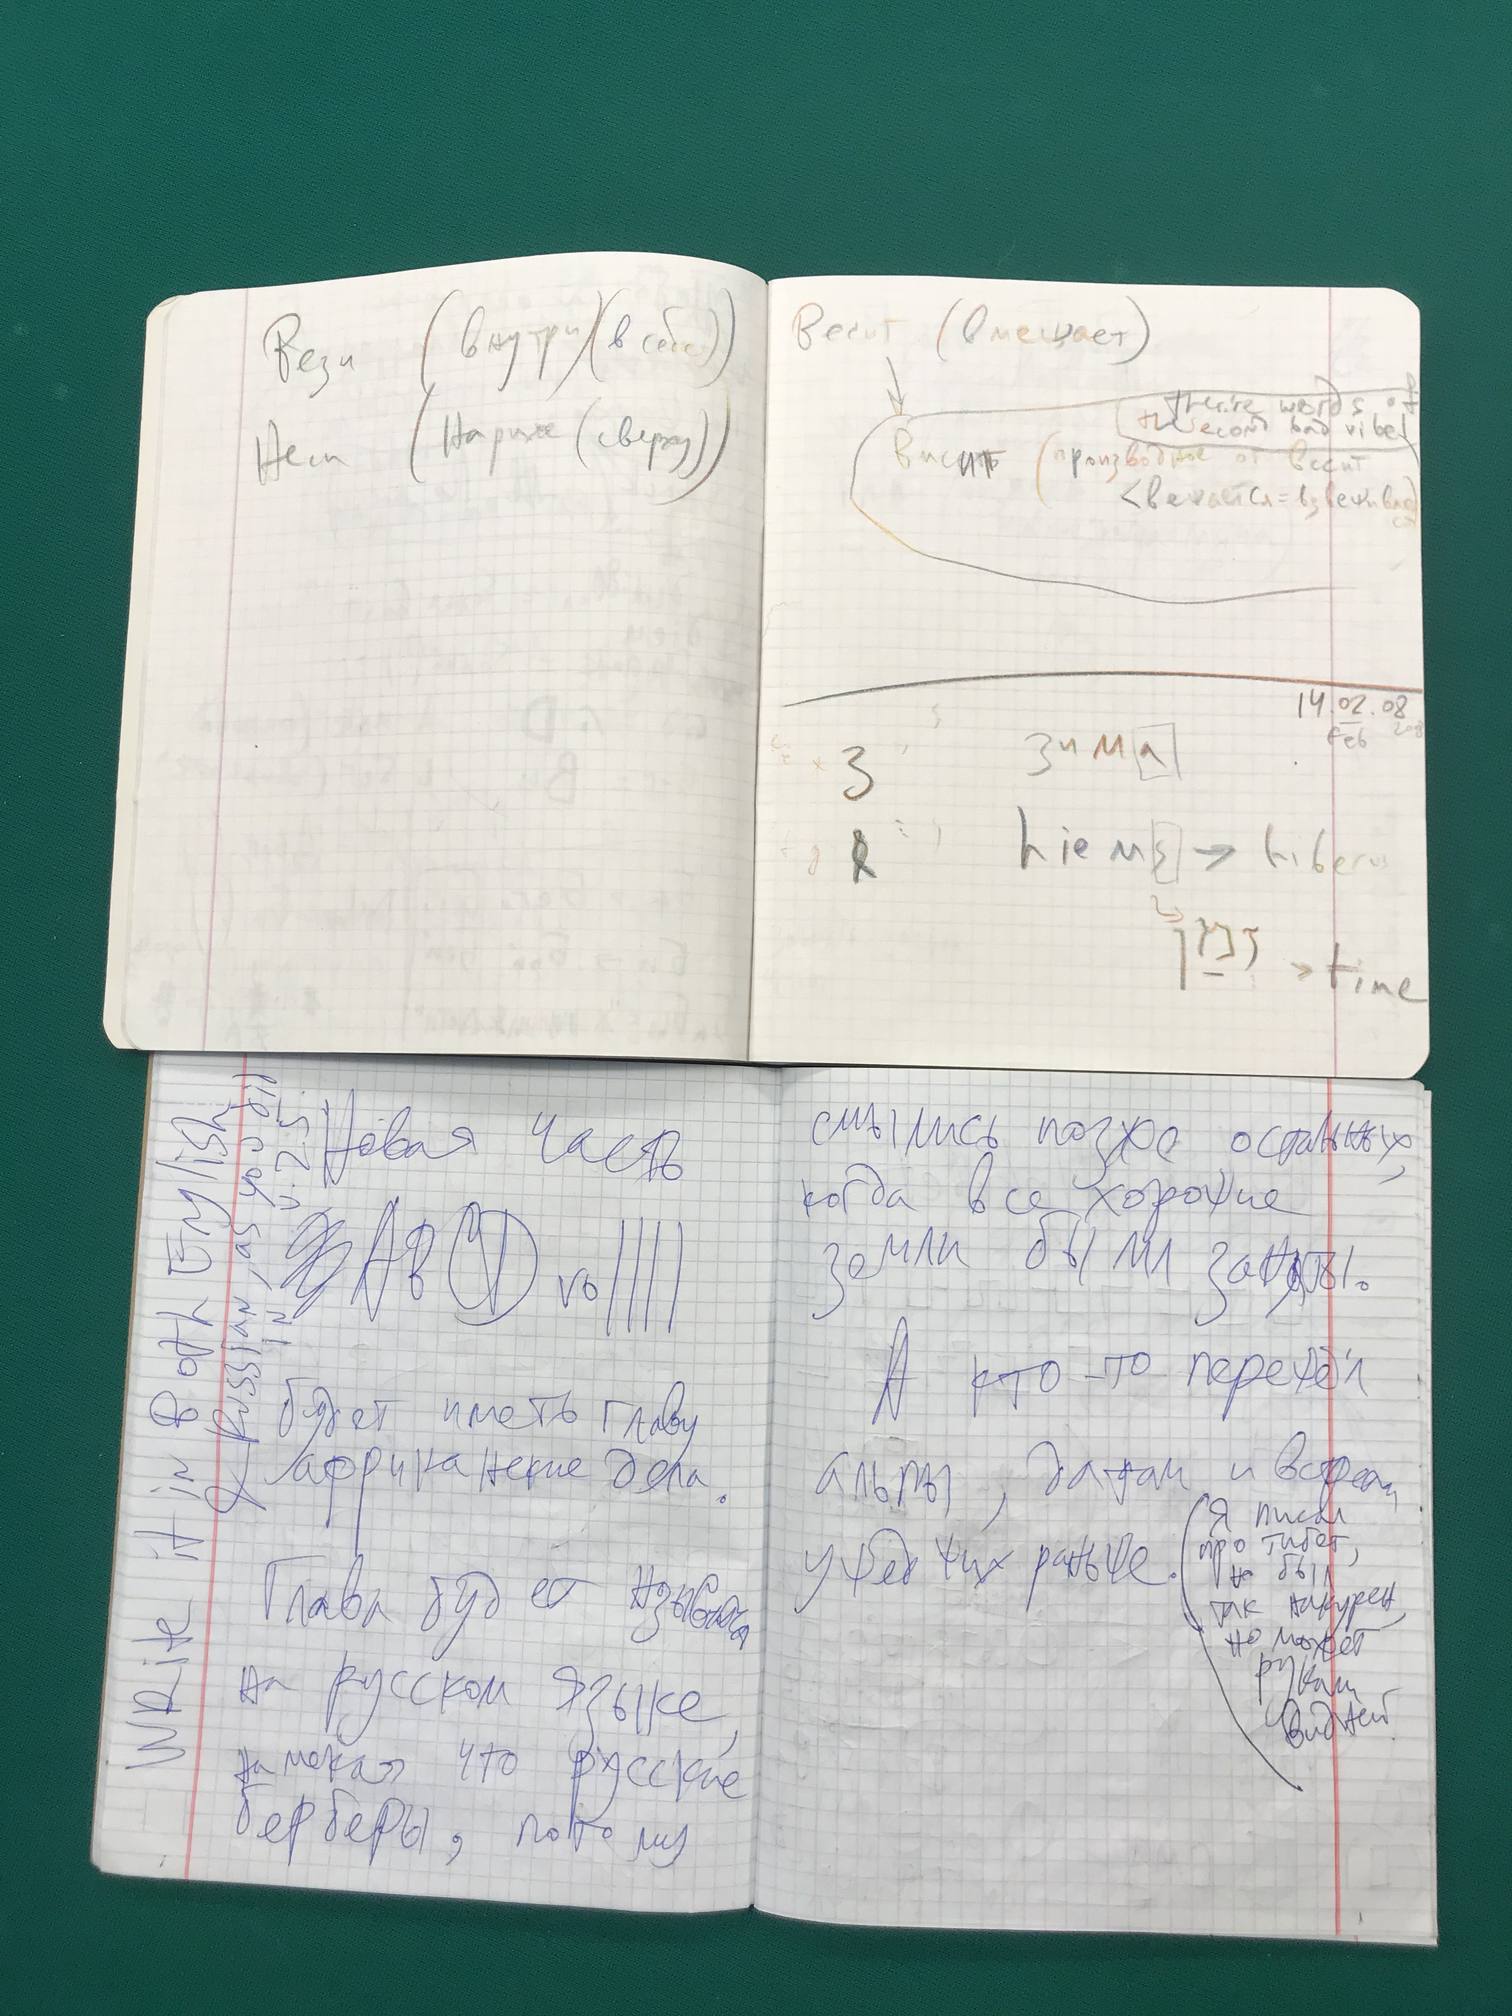 Вези (внутри (в себе))
Неси (Наружу (сверху))
Весит (вмещает)
there words of
the second bad vibe
висит (производное от весит
<вешается = взвешивается
14.02.08
Feb
З зима
hiems → hiberus
→ time
Write it in Both English
& Russian, as you did
in v.2.5
Новая часть
ABCD vs ||||
будет иметь главу
африканские дела.
Глава будет называться
на русском языке,
намекая что русские
берберы, потому
смылись позже остальных,
когда все хорошие
земли были заняты.
А кто-то перешёл
альпы, а там и встретил
ушедших раньше.
(Я писал
про тибет,
но был
так накурен,
но может
рукам
видней.